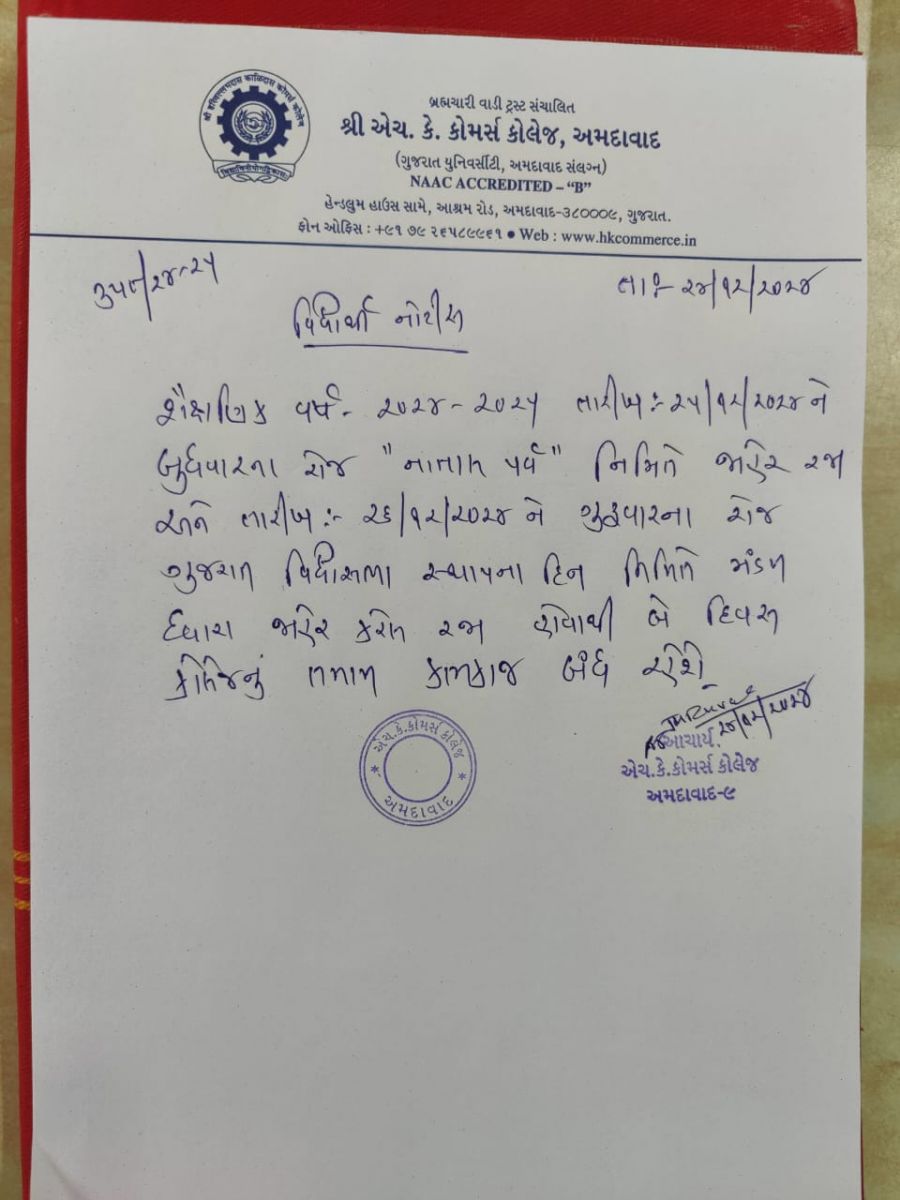 શ્રી હરિવલ્લભદાસ કાળિદાસ કોમર્સ કોલેજ
બ્રહ્મચારી વાડી ટ્રસ્ટ સંચાલિત
શ્રી એચ. કે. કોમર્સ કોલેજ, અમદાવાદ
(ગુજરાત યુનિવર્સીટી, અમદાવાદ સંલગ્ન)
NAAC ACCREDITED – “B”
હેન્ડલુમ હાઉસ સામે, આશ્રમ રોડ, અમદાવાદ-૩૮૦૦૦૯, ગુજરાત.
ફોન ઓફિસ : +૯૧ ૭૯ ૨૬૫૮૯૯૬૧ ● Web : www.hkcommerce.in
/૨૪-૨૫
તા:- ૨૪/૧૨/૨૦૨૪
વિદ્યાર્થી નોટીસ
શૈક્ષણિક વર્ષ- ૨૦૨૪-૨૦૨૫ તારીખ:- ૨૫/૧૨/૨૦૨૪ ને
બુધવારના રોજ "નાતાલ પર્વ" નિમિતે જાહેર રજા
અને તારીખ:- ૨૬/૧૨/૨૦૨૪ ને ગુરૂવારના રોજ
ગુજરાત વિદ્યાસભા સ્થાપના દિન નિમિતે મંડળ
દ્વારા જાહેર કરેલ રજા હોવાથી બે દિવસ
કોલેજનું તમામ કામકાજ બંધ રહેશે.
૨૪/૧૨/૨૦૨૪
આચાર્ય.
એચ.કે.કોમર્સ કોલેજ
અમદાવાદ-૯
એચ.કે.કોમર્સ કોલેજ
અમદાવાદ